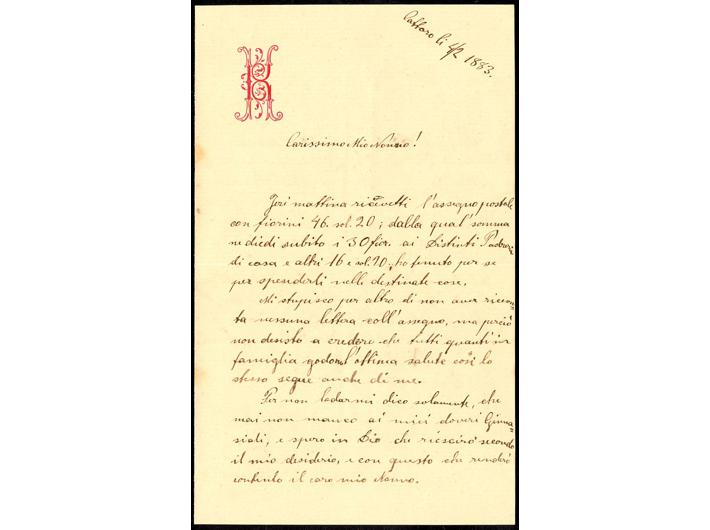 Cattaro li 4/2 1883.
Carissimo Mio Nonno!
Jeri mattina ricevetti l'assegno postale
con fiorini 46. sol. 20; dalla qual somma
ne diedi subito i 30 fior. ai Distinti Padroni
di casa e altri 16 e sol. 20, ho tenuto per se
per spenderli nelle destinate cose.
Mi stupisco per altro di non aver ricevu-
ta nessuna lettera coll'assegno, ma perciò
non desisto a credere che tutti quanti in
famiglia godono l'ottima salute così lo
stesso segue anche di me.
Per non lodarmi dico solamente, che
mai non manco ai miei doveri Ginna-
siali, e spero in Dio che riescirò secondo
il mio desiderio, e con questo che renderò
contento il caro mio Nonno.